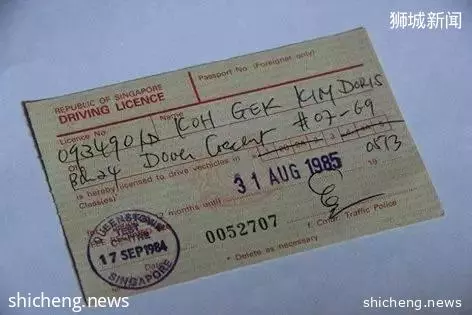 狮城新闻
REPUBLIC OF SINGAPORE
DRIVING LICENCE
Passport No. (Foreigner only)
Licence No.
Name
KOH GEK KIM DORIS
Dover Crescent #07-69
0513
is hereby licensed to drive vehicles in
Class(es)
31 AUG 1985
months until
19
f. Comr. Traffic Police
0052707
* Delete as necessary
QUEENSTOWN
17 SEP 1984
SINGAPORE
shicheng.news
shicheng.news